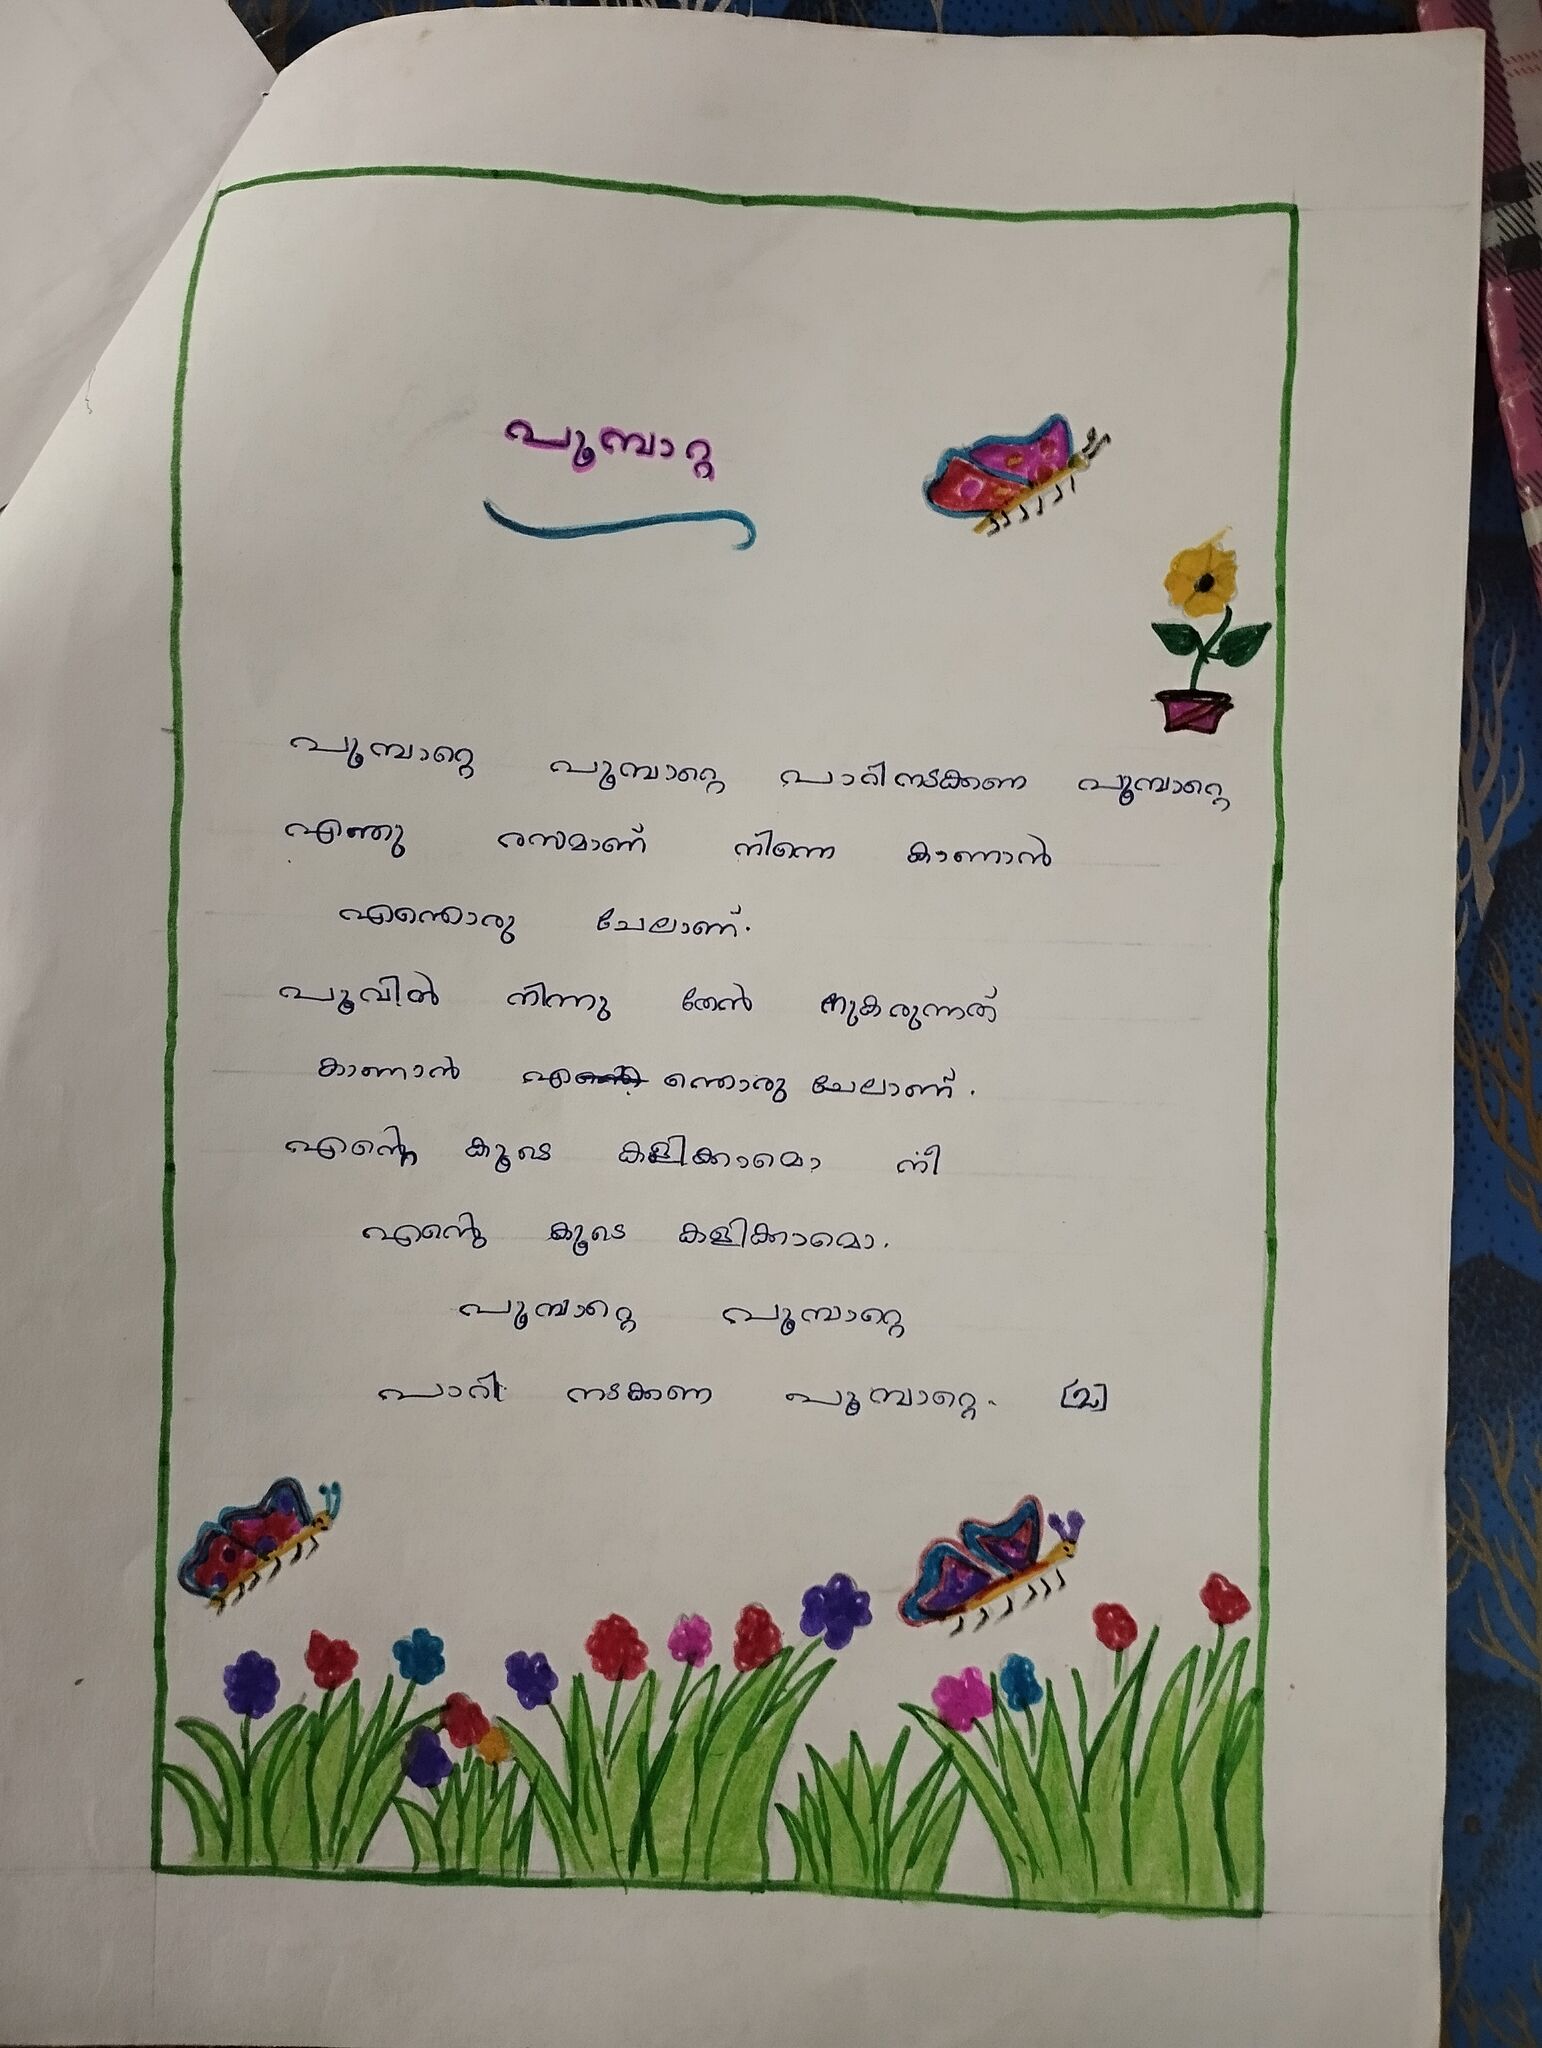 പൂമ്പാറ്റ
പൂമ്പാറ്റെ പൂമ്പാറ്റെ പാറിനടക്കണ പൂമ്പാറ്റെ
എന്തു രസമാണ് നിന്നെ കാണാൻ
എന്തൊരു ചേലാണ്.
പൂവിൽ നിന്നു തേൻ നുകരുന്നത്
കാണാൻ എന്തൊരു ചേലാണ്.
എന്റെ കൂടെ കളിക്കാമൊ നീ
എന്റെ കൂടെ കളിക്കാമൊ.
പൂമ്പാറ്റെ പൂമ്പാറ്റെ
പാറി നടക്കണ പൂമ്പാറ്റെ.